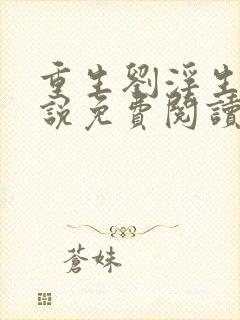 重生劉淫生
說免費閱讀
蒼妹